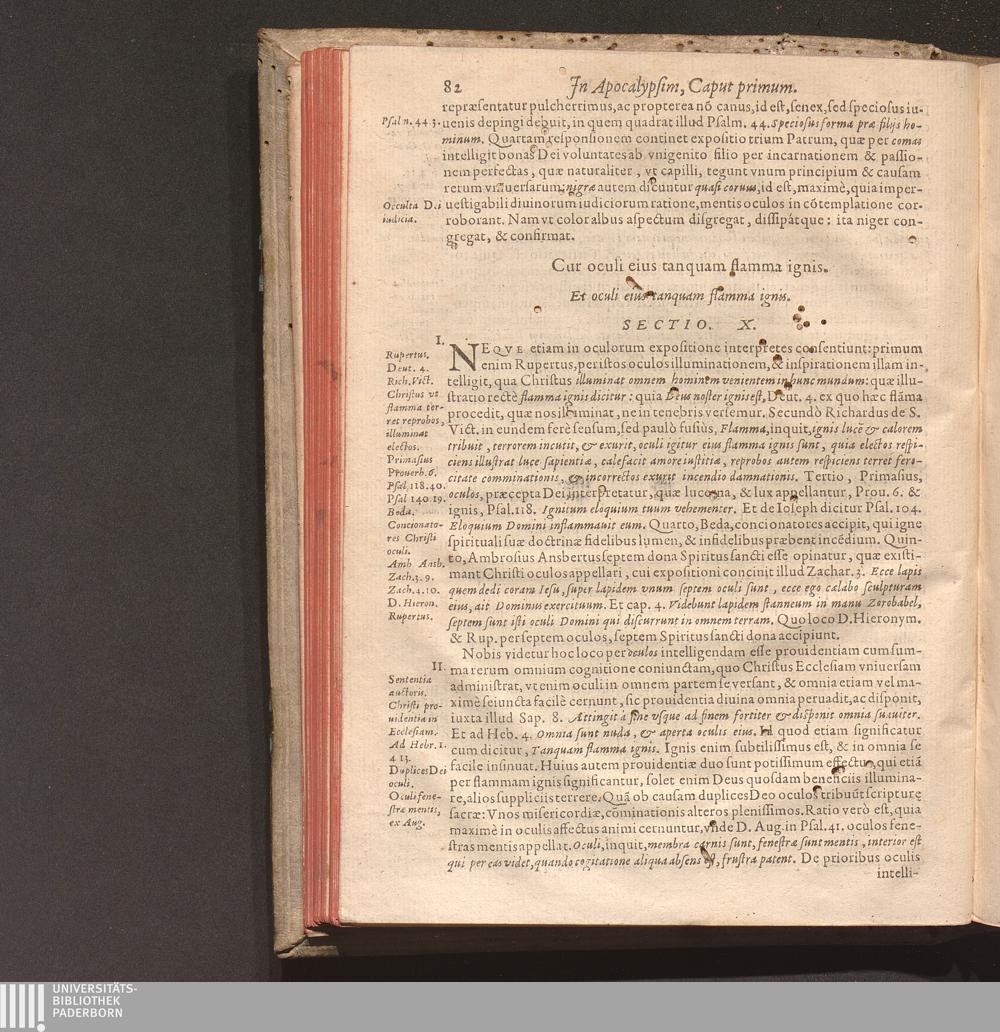 82 In Apocalypsim, Caput primum.
repræsentatur pulcherrimus, ac propterea nõ canus, id est, senex, sed speciosus iu-
Psal n. 44 3.
uenis depingi debuit, in quem quadrat illud Psalm. 44. Speciosus forma præ filijs ho-
minum. Quartam responsionem continet expositio trium Patrum, quæ per comas
intelligit bonas Dei voluntates ab vnigenito filio per incarnationem & passio-
nem perfectas, quæ naturaliter, vt capilli, tegunt vnum principium & causam
rerum vniuersarum: nigræ autem dicuntur quasi coruus, id est, maximè, quia imper-
Occulta Dei
iudicia.
uestigabili diuinorum iudiciorum ratione, mentis oculos in cõtemplatione cor-
roborant. Nam vt color albus aspectum disgregat, dissipátque: ita niger con-
gregat, & confirmat.
Cur oculi eius tanquam flamma ignis.
Et oculi eius tanquam flamma ignis.
SECTIO. X.
I.
Rupertus.
Deut. 4.
Rich. Vict.
Christus vt
flamma ter-
ret reprobos,
illuminat
electos.
Primasius
Prouerb. 6.
Psal. 118. 40.
Psal 140. 19.
Beda.
Concionato-
res Christi
oculi.
Amb Ansb.
Zach. 3. 9.
Zach. 4. 10.
D. Hieron.
Rupertus.
NEQVE etiam in oculorum expositione interpretes consentiunt: primum
enim Rupertus, per istos oculos illuminationem, & inspirationem illam in-
telligit, qua Christus illuminat omnem hominem venientem in hunc mundum: quæ illu-
stratio rectè flamma ignis dicitur: quia Deus noster ignis est, Deut. 4. ex quo hæc flãma
procedit, quæ nos illuminat, ne in tenebris versemur. Secundò Richardus de S.
Vict. in eundem ferè sensum, sed paulò fusiùs, Flamma, inquit, ignis lucẽ & calorem
tribuit, terrorem incutit, & exurit, oculi igitur eius flamma ignis sunt, quia electos respi-
ciens illustrat luce sapientiæ, calefacit amore iustitiæ, reprobos autem respiciens terret fero-
citate comminationis, & incorrectos exurit incendio damnationis. Tertio, Primasius,
oculos, præcepta Dei interpretatur, quæ lucerna, & lux appellantur, Prou. 6. &
ignis, Psal. 118. Ignitum eloquium tuum vehementer. Et de Ioseph dicitur Psal. 104.
Eloquium Domini inflammauit eum. Quarto, Beda, concionatores accipit, qui igne
spirituali suæ doctrinæ fidelibus lumen, & infidelibus præbent incẽdium. Quin-
to, Ambrosius Ansbertus septem dona Spiritus sancti esse opinatur, quæ existi-
mant Christi oculos appellari, cui expositioni concinit illud Zachar. 3. Ecce lapis
quem dedi coram Iesu, super lapidem vnum septem oculi sunt, ecce ego cælabo sculpturam
eius, ait Dominus exercituum. Et cap. 4. Videbunt lapidem stanneum in manu Zorobabel,
septem sunt isti oculi Domini qui discurrunt in omnem terram. Quo loco D. Hieronym.
& Rup. per septem oculos, septem Spiritus sancti dona accipiunt.
II.
Sententia
auctoris.
Christi pro-
uidentia in
Ecclesiam.
Ad Hebr. 1.
4 13.
Duplices Dei
oculi.
Oculi fene-
stræ mentis,
ex Aug.
Nobis videtur hoc loco per oculos intelligendam esse prouidentiam cum sum-
ma rerum omnium cognitione coniunctam, quo Christus Ecclesiam vniuersam
administrat, vt enim oculi in omnem partem se versant, & omnia etiam vel ma-
ximè seiuncta facilè cernunt, sic prouidentia diuina omnia peruadit, ac disponit,
iuxta illud Sap. 8. Attingit à fine vsque ad finem fortiter & disponit omnia suauiter.
Et ad Heb. 4. Omnia sunt nuda, & aperta oculis eius. Id quod etiam significatur
cum dicitur, Tanquam flamma ignis. Ignis enim subtilissimus est, & in omnia se
facile insinuat. Huius autem prouidentiæ duo sunt potissimum effectus, qui etiã
per flammam ignis significantur, solet enim Deus quosdam beneficiis illumina-
re, alios suppliciis terrere. Quã ob causam duplices Deo oculos tribuũt scripturę
sacræ: Vnos misericordiæ, cõminationis alteros plenissimos. Ratio verò est, quia
maximè in oculis affectus animi cernuntur, vnde D. Aug. in Psal. 41. oculos fene-
stras mentis appellat. Oculi, inquit, membra carnis sunt, fenestræ sunt mentis, interior est
qui per eas videt, quando cogitatione aliqua absens est, frustra patent. De prioribus oculis
intelli-
UNIVERSITÄTS-
BIBLIOTHEK
PADERBORN